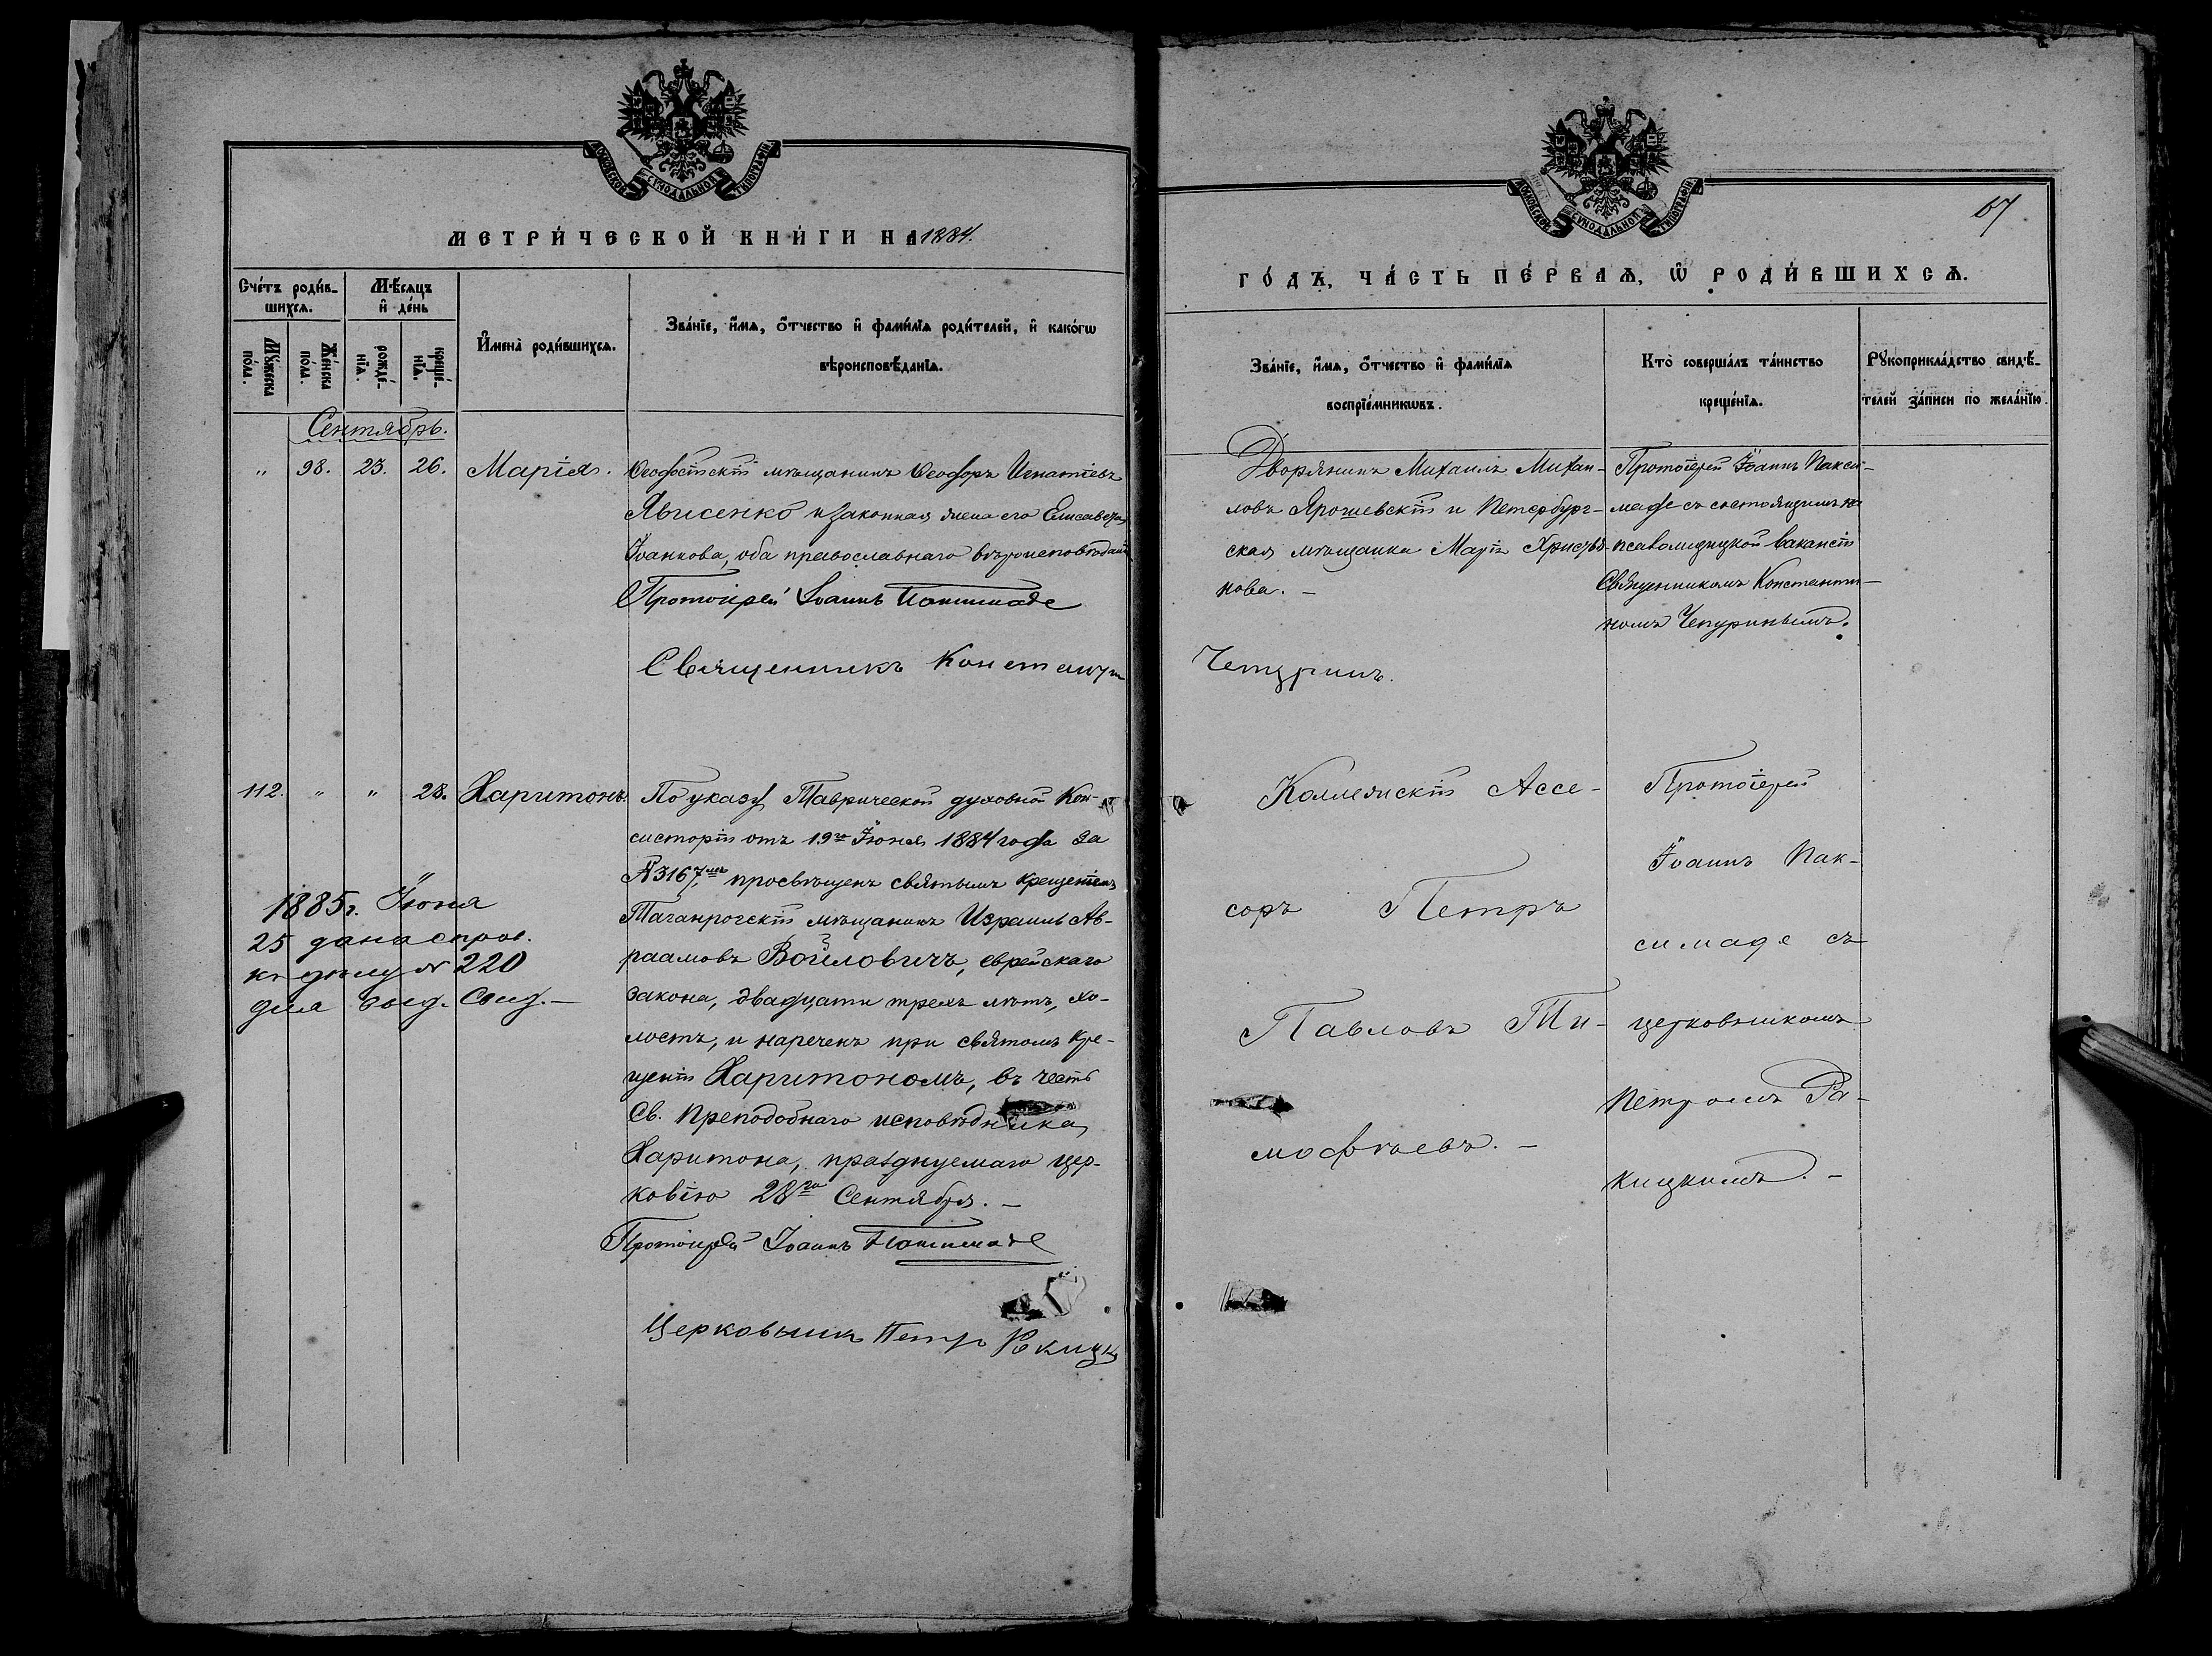 МОСКОВСКОЙ СѴНОДАЛЬНОЙ ТИПОГРАФІИ
МЕТРИ́ЧЕСКОЙ КНИ́ГИ НА 1884.
Сче́тъ роди́в-
шихсѧ.
Мꙋ́жеска
по́ла.
Же́нска
по́ла.
Мѣ́сѧцъ
и҆ де́нь
рожде́-
нїѧ.
креще́-
нїѧ.
И҆мена̀ роди́вшихсѧ.
Зва́нїе, и҆́мѧ, ѻ҆́тчество и҆ фами́лїѧ роди́телей, и҆ како́гѡ
вѣроисповѣ́данїѧ.
Сентябрь.
" 98. 23. 26. Марія.
Ѳеодосійскій мѣщанинъ Ѳеодоръ Игнатіевъ
Явисенко и законная жена его Елисавета
Іоаннова, оба православнаго вѣроисповѣданія
Протоіерей Іоаннъ Паксимаде
Священникъ Константин
112. " " 28. Харитонъ.
По указу Таврической духовной Кон-
систоріи отъ 19го Іюня 1884 года за
№ 3167мъ, просвѣщенъ святымъ крещеніемъ
Таганрогскій мѣщанинъ Израиль Ав-
раамовъ Войловичъ, еврейскаго
закона, двадцати трехъ лѣтъ, хо-
лостъ, и нареченъ при святомъ Кре-
щеніи Харитономъ, въ честь
Св. Преподобнаго исповѣдника
Харитона, празднуемаго цер-
ковію 28го Сентября. —
Протоіерей Іоаннъ Паксимаде
Церковникъ Петръ Ракицкі
1885 г. Іюня
25 дана справ.
къ дѣлу № 220
для выд. Свид. —
МОСКОВСКОЙ СѴНОДАЛЬНОЙ ТИПОГРАФІИ
67
ГО́ДЪ, ЧА́СТЬ ПЕ́РВАѦ, Ѡ҆ РОДИ́ВШИХСѦ.
Зва́нїе, и҆́мѧ, ѻ҆́тчество и҆ фами́лїѧ
воспрїе́мникѡвъ.
Кто̀ соверша́лъ та́инство
креще́нїѧ.
Рꙋкоприкла́дство свидѣ́-
телей за́писи по жела́нїю.
Дворянинъ Михаилъ Михаи-
ловъ Ярошевскій и Петербург-
ская мѣщанка Марія Христіа-
нова. —
Протоіерей Іоаннъ Пакси-
маде съ состоящимъ на
псаломщицкой вакансіи
Священникомъ Константи-
номъ Чепуринымъ.
Чепуринъ.
Коллежскій Ассе-
соръ Петръ
Павловъ Ти-
моѳѣевъ. —
Протоіерей
Іоаннъ Пак-
симаде съ
церковникомъ
Петромъ Ра-
кицкимъ. —